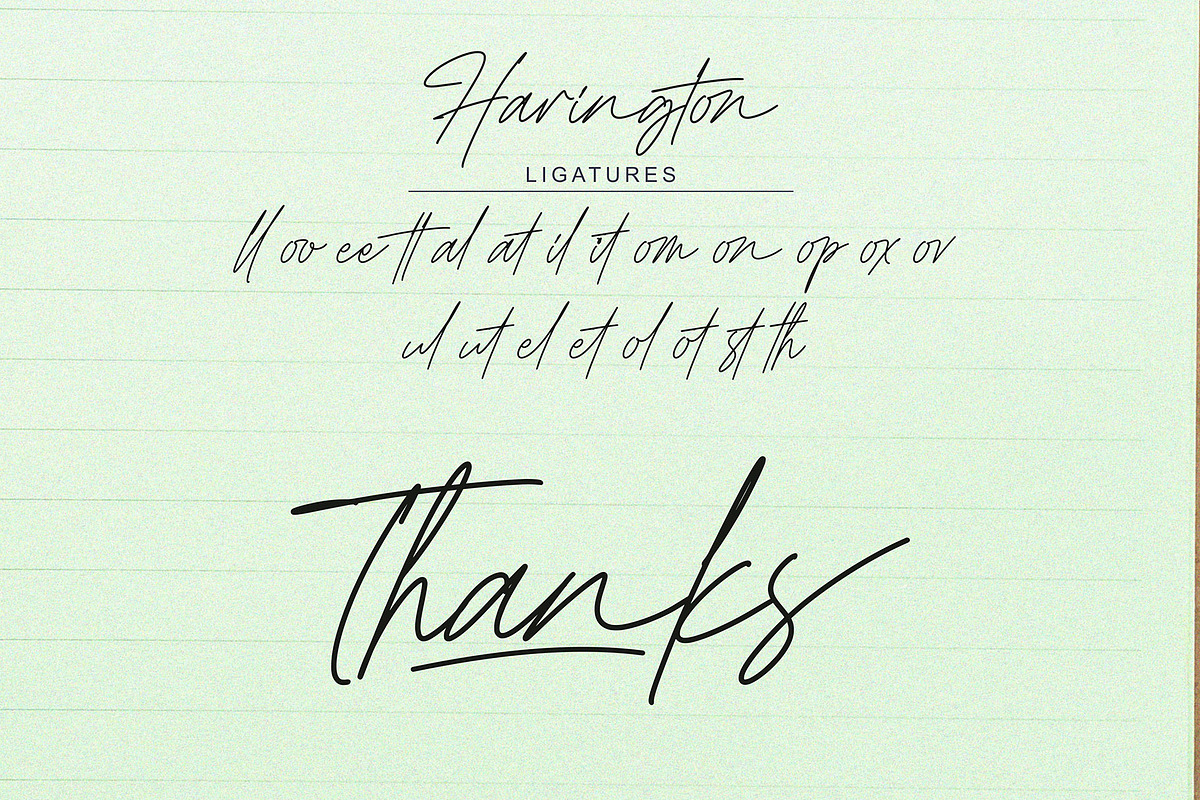 Harington
LIGATURES
ll ov ee tt al at il it om on op ox ov
ul ut el et ol ot st th
Thanks